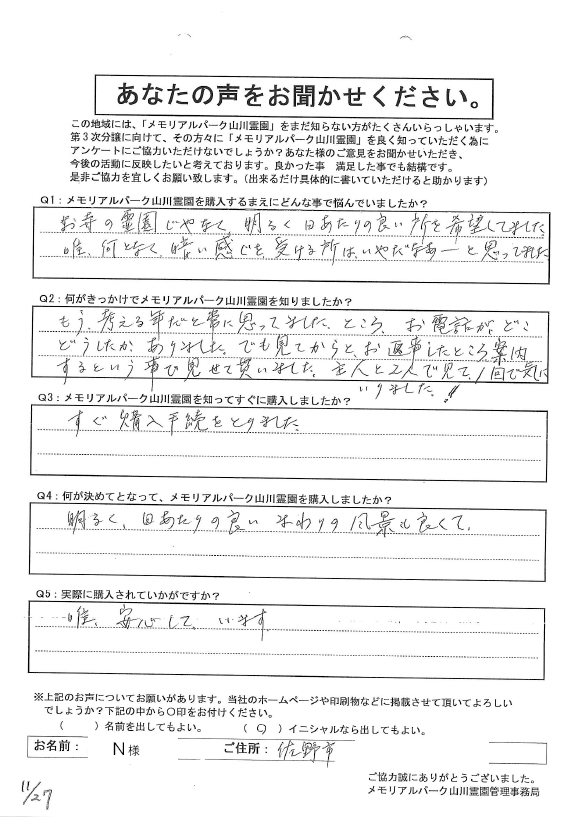 あなたの声をお聞かせください。
この地域には、「メモリアルパーク山川霊園」をまだ知らない方がたくさんいらっしゃいます。
第3次分譲に向けて、その方々に「メモリアルパーク山川霊園」を良く知っていただく為に
アンケートにご協力いただけないでしょうか？あなた様のご意見をお聞かせいただき、
今後の活動に反映したいと考えております。良かった事 満足した事でも結構です。
是非ご協力を宜しくお願い致します。（出来るだけ具体的に書いていただけると助かります）
Q1：メモリアルパーク山川霊園を購入するまえにどんな事で悩んでいましたか？
お寺の霊園じゃなく、明るく日あたりの良い所を希望してました
唯、何となく、暗い感じを受ける所はいやだなあーと思ってました
Q2：何がきっかけでメモリアルパーク山川霊園を知りましたか？
もう、考える年だと常に思ってました、ところ、お電話が、
どうしたか ありました。でも見てからと、お返事したところ、案内
するという事で見せて貰いました。主人と2人で見て、1回で気に
いりました。!!
Q3：メモリアルパーク山川霊園を知ってすぐに購入しましたか？
すぐ購入手続をとりました
Q4：何が決めてとなって、メモリアルパーク山川霊園を購入しましたか？
明るく、日あたりの良い まわりの風景も良くて、
Q5：実際に購入されていかがですか？
唯、安心して、います。
※上記のお声についてお願いがあります。当社のホームページや印刷物などに掲載させて頂いてよろしい
でしょうか？下記の中から○印をお付けください。
（ ）名前を出してもよい。 （○）イニシャルなら出してもよい。
お名前： N様 ご住所： 佐野市
ご協力誠にありがとうございました。
11/27 メモリアルパーク山川霊園管理事務局